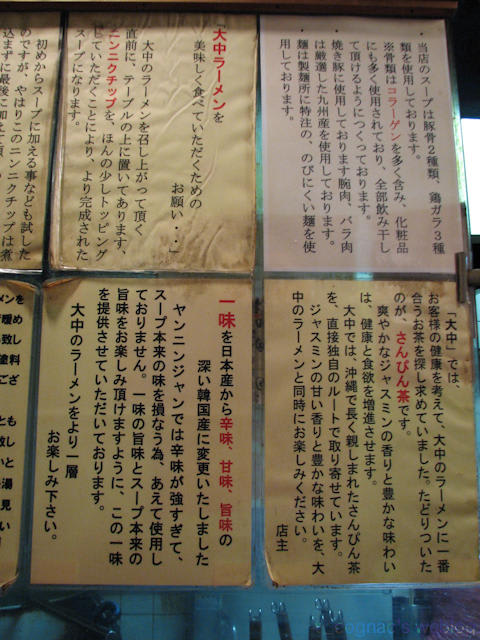 ・当店のスープは豚骨2種類、鶏ガラ3種
類を使用しております。
※骨類はコラーゲンを多く含み、化粧品
にも多く使用されており、全部飲み干し
て頂けるようにつくっております。
焼き豚に使用しております腕肉、バラ肉
は厳選した九州産を使用しております。
麺は製麺所に特注の、のびにくい麺を使
用しております。
「大中ラーメンを
美味しく食べていただくための
お願い・・」
大中のラーメンを召し上がって頂く
直前に、テーブルの上に置いてあります、
ニンニクチップを、ほんの少しトッピング
していただくことにより、より完成された
スープになります。
初めからスープに加える事なども試した
のですが、やはりこのニンニクチップは煮
込まずに最後に加えて頂
「大中」では、
お客様の健康を考えて、大中のラーメンに一番
合うお茶を探し求めていました。たどりついた
のが、さんぴん茶です。
爽やかなジャスミンの香りと豊かな味わい
は、健康と食欲を増進させます。
大中では、沖縄で長く親しまれたさんぴん茶
を、直接独自のルートで取り寄せています。
ジャスミンの甘い香りと豊かな味わいを、大
中のラーメンと同時にお楽しみください。
店主
一味を日本産から辛味、甘味、旨味の
深い韓国産に変更いたしました
ヤンニンジャンでは辛味が強すぎて、
スープ本来の味を損なう為、あえて使用し
ておりません。一味の旨味とスープ本来の
旨味をお楽しみ頂けますように、この一味
を提供させていただいております。
大中のラーメンをより一層
お楽しみ下さい。
メンを
暖め
致し
塗料
ござ
とも
致し
いと
湯
見
い
cognac's weblog